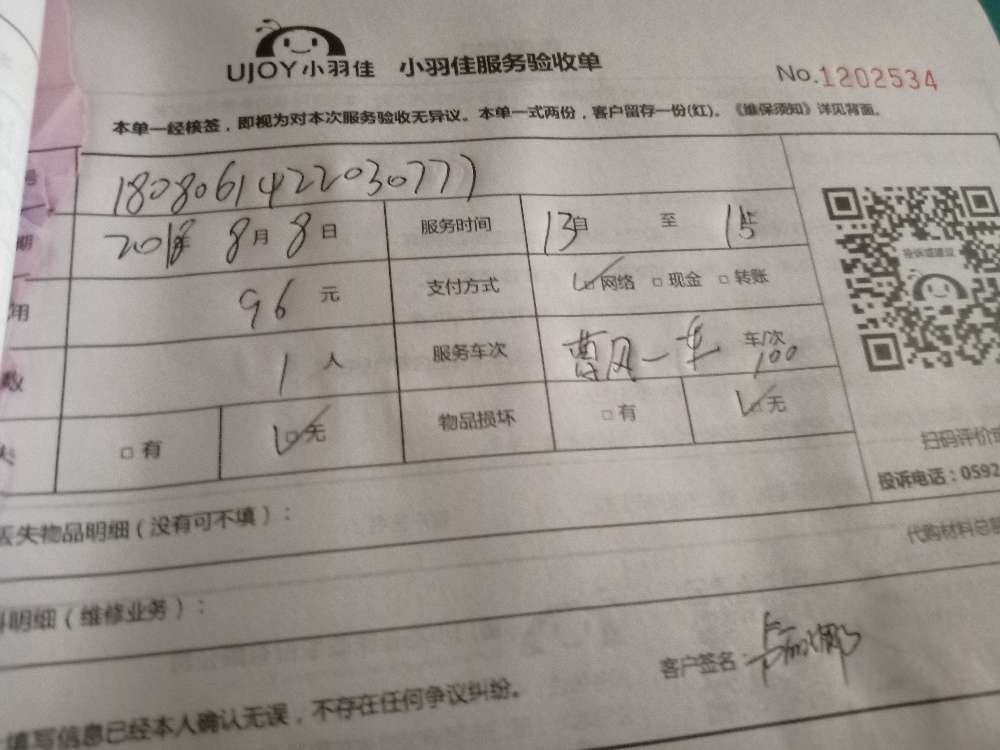 UJOY小羽佳 小羽佳服务验收单 No.1202534
本单一经核签，即视为对本次服务验收无异议。本单一式两份，客户留存一份(红)。《维保须知》详见背面。
号 18080614222030777
期 2018年 8月 8日 服务时间 13自 至 15
用 96 元 支付方式 ☑网络 □现金 □转账
数 1 人 服务车次 一车 车/次 100
□有 ☑无 物品损坏 □有 ☑无
投诉或建议
扫码评价
投诉电话：0592
丢失物品明细（没有可不填）：
代购材料总
料明细（维修业务）：
客户签名：
填写信息已经本人确认无误，不存在任何争议纠纷。